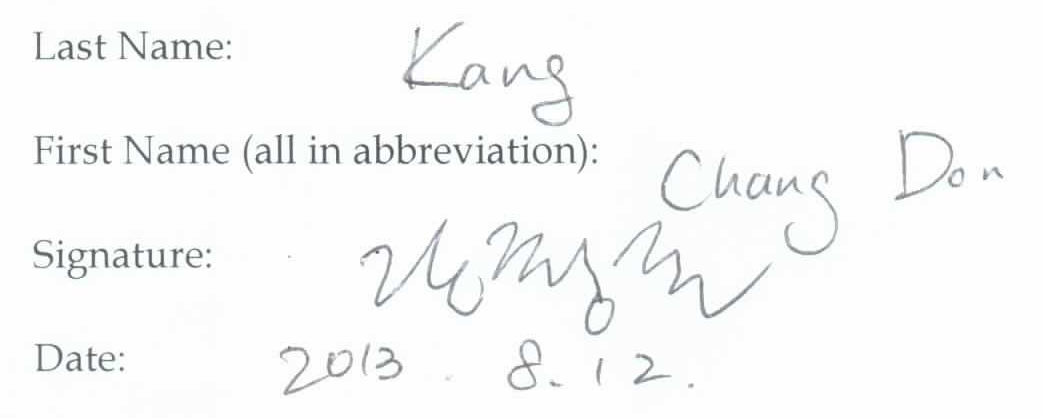 Last Name: Kang
First Name (all in abbreviation): Chang Don
Signature:
Date: 2013. 8. 12.